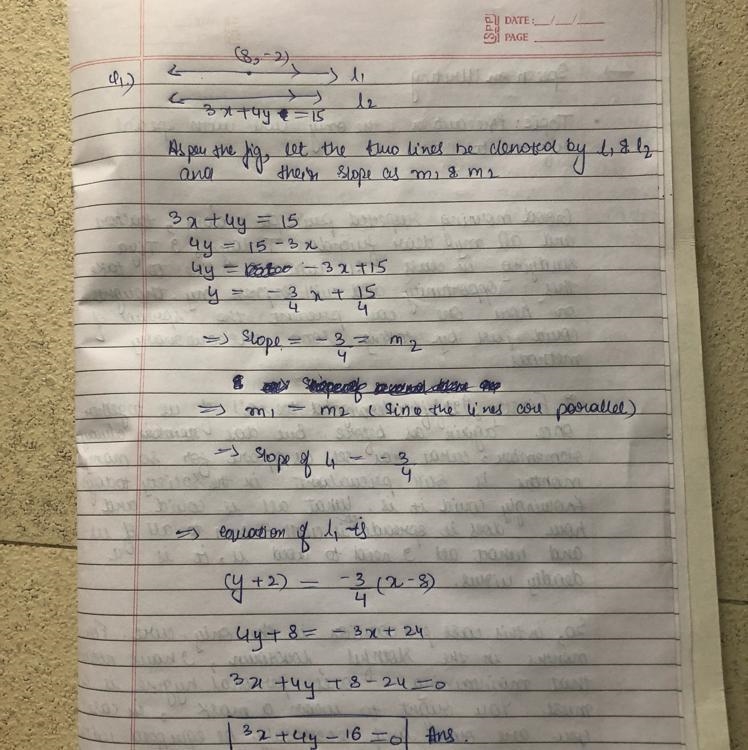 SPP DATE: __/__/__
PAGE
(8, -2)
Q1.) l1
l2
3x+4y = 15
As per the fig, let the two lines be denoted by l1 & l2
and their slope as m1 & m2
3x+4y = 15
4y = 15-3x
4y = -3x+15
y = -3/4 x + 15/4
=> Slope = -3/4 = m2
=> m1 = m2 (Since the lines are parallel)
=> Slope of l1 = -3/4
=> equation of l1 is
(y+2) = -3/4 (x-8)
4y+8 = -3x+24
3x+4y+8-24=0
3x+4y-16=0 Ans.